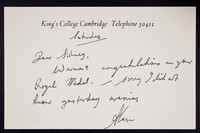 King's College Cambridge Telephone 50411
Saturday
Dear Sidney,
Warmest congratulations on your
Royal Medal. — Sorry I did not
know yesterday evening
Alan